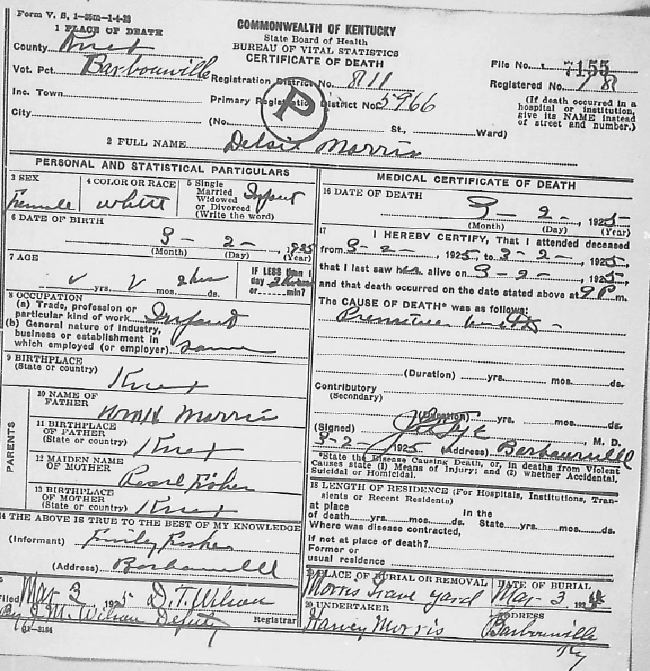 Form V. S. 1-25m-1-4-23
COMMONWEALTH OF KENTUCKY
State Board of Health
BUREAU OF VITAL STATISTICS
CERTIFICATE OF DEATH
1 PLACE OF DEATH
County Knox
Vot. Pct. Barbourville
Inc. Town
City
File No. 7155
Registration District No. 811
Registered No. 18
Primary Registration District No. 5966
P
(If death occurred in a hospital or institution, give its NAME instead of street and number.)
(No. St., Ward)
2 FULL NAME Delsie Morris
PERSONAL AND STATISTICAL PARTICULARS
3 SEX
Female
4 COLOR OR RACE
White
5 Single
Married
Widowed
or Divorced
(Write the word)
Infant
6 DATE OF BIRTH
3 - 2 - 1925
(Month) (Day) (Year)
7 AGE
yrs. mos. ds.
2 hrs
IF LESS than 1
day 2 hrs
or min?
8 OCCUPATION
(a) Trade, profession or
particular kind of work Infant
(b) General nature of industry,
business or establishment in
which employed (or employer) same
9 BIRTHPLACE
(State or country) Knox
PARENTS
10 NAME OF
FATHER Morris
11 BIRTHPLACE
OF FATHER
(State or country) Knox
12 MAIDEN NAME
OF MOTHER Pearl Fisher
13 BIRTHPLACE
OF MOTHER
(State or country) Knox
14 THE ABOVE IS TRUE TO THE BEST OF MY KNOWLEDGE
(Informant) Emily Fisher
(Address) Barbourville
Filed Mar 3 1925 D. T. Wilson
By J. M. Wilson Deputy Registrar
MEDICAL CERTIFICATE OF DEATH
16 DATE OF DEATH
3 - 2 - 1925
(Month) (Day) (Year)
17 I HEREBY CERTIFY, That I attended deceased
from 3-2-, 1925, to 3-2-, 1925,
that I last saw alive on 3-2-, 1925,
and that death occurred on the date stated above at 9 P. m.
The CAUSE OF DEATH* was as follows:
Premature birth
(Duration) yrs. mos. ds.
Contributory
(Secondary)
(Duration) yrs. mos. ds.
(Signed) M. D.
3-2-, 1925 (Address) Barbourville
*State the Disease Causing Death, or, in deaths from Violent
Causes state (1) Means of Injury; and (2) whether Accidental,
Suicidal or Homicidal.
18 LENGTH OF RESIDENCE (For Hospitals, Institutions, Transients or Recent Residents)
at place
of death yrs. mos. ds.
In the
State yrs. mos. ds.
Where was disease contracted,
if not at place of death?
Former or
usual residence
19 PLACE OF BURIAL OR REMOVAL
Morris Grave yard
DATE OF BURIAL
Mar 3. 1925
20 UNDERTAKER
Harvey Morris
ADDRESS
Barbourville
Ky